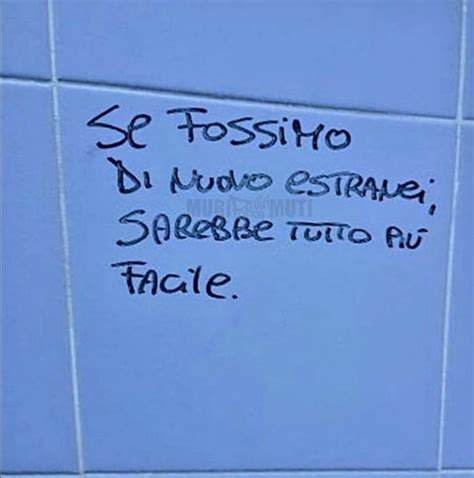 Se FOSSIMO
DI NUOVO ESTRANEI,
MURI MUTI
SAREBBE TUTTO PIÙ
FACILE.